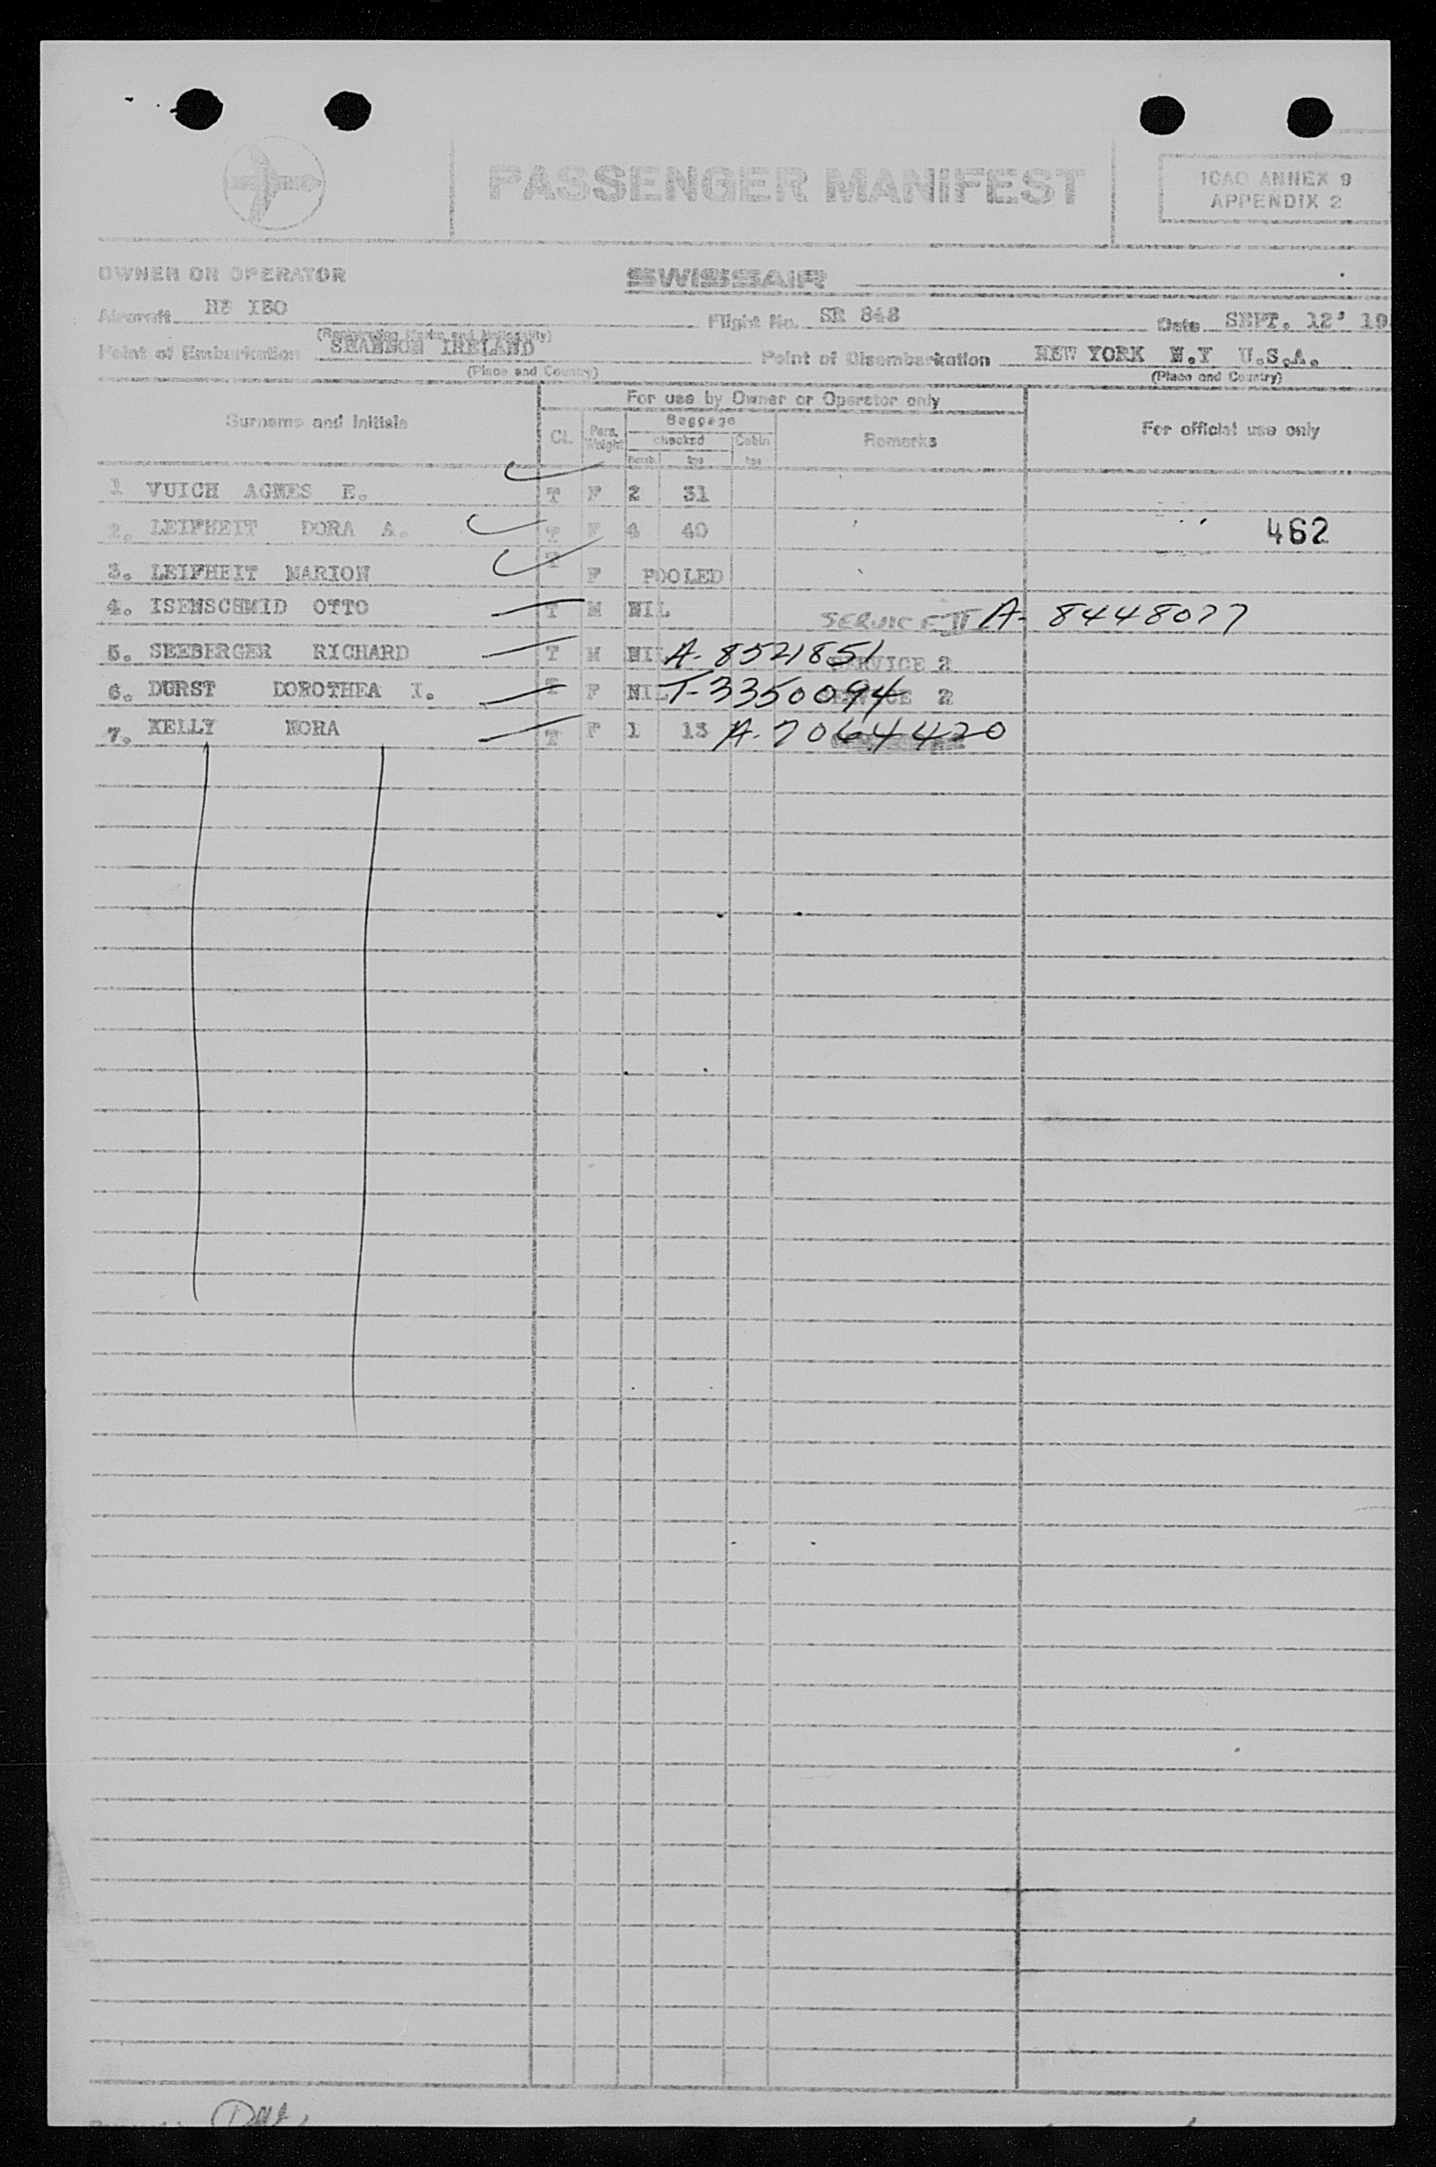 PASSENGER MANIFEST
ICAO ANNEX 9
APPENDIX 2
OWNER OR OPERATOR SWISSAIR
Aircraft Flight No. SR 848 Date SEPT. 12' 19
(Registration Marks and Nationality)
Point of Embarkation SHANNON IRELAND Point of Disembarkation NEW YORK N.Y U.S.A.
(Place and Country) (Place and Country)
For use by Owner or Operator only
Surname and Initials Cl. Pers. Weight Baggage Remarks For official use only
checked Cabin
kgs kgs
1 VUICH AGNES E. T F 2 31
2. LEIFHEIT DORA A. T F 4 40 462
3. LEIFHEIT MARION T F POOLED
4. ISENSCHMID OTTO T M NIL SERVICE II A- 8448077
5. SEEBERGER RICHARD T M NIL A-8521851 SERVICE 2
6. DURST DOROTHEA I. T F NIL T-3350094 SERVICE 2
7. KELLY NORA T F 1 13 A-7064420